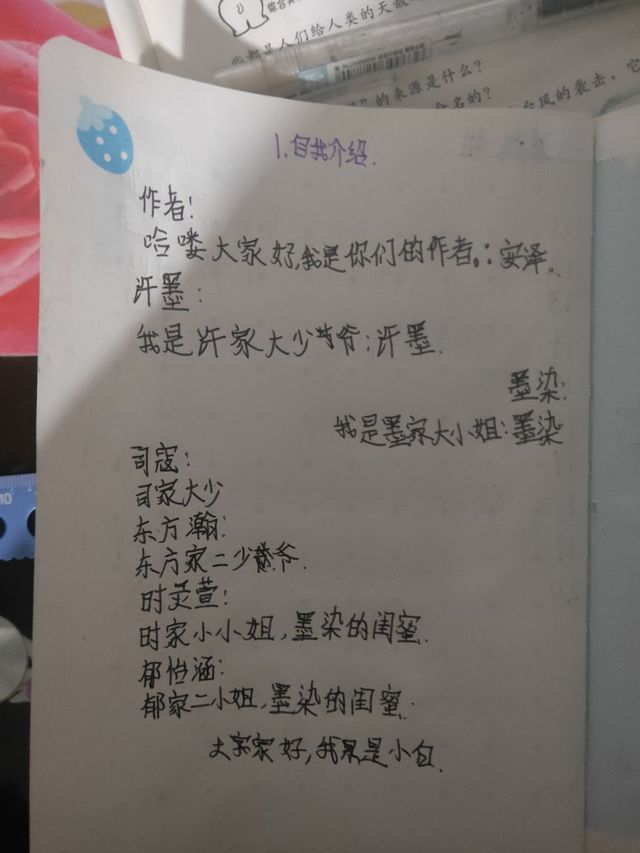 些都是人们给人类的天敌
的来源是什么?
命名的?
台风的袭击,它
1.自我介绍.
作者:
哈喽大家好,我是你们的作者:安泽。
许墨:
我是许家大少爷:许墨.
墨染:
我是墨家大小姐:墨染
司寇:
司家大少
东方瀚:
东方家二少爷.
时灵萱:
时家小小姐,墨染的闺蜜.
郁怡涵:
郁家二小姐,墨染的闺蜜.
大家好,我是小白.